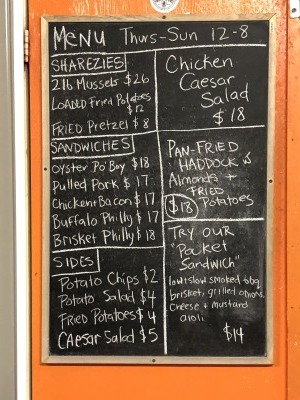 Menu Thurs-Sun 12-8
SHAREZIES
2lb Mussels $26
LOADED Fried Potatoes
$12
FRIED Pretzel $8
SANDWICHES
Oyster Po'Boy $18
Pulled Pork $17
Chicken Bacon $17
Buffalo Philly $17
Brisket Philly $18
SIDES
Potato Chips $2
Potato Salad $4
Fried Potatoes $4
CAesar Salad $5
Chicken
Caesar
Salad
$18
PAN-FRIED
HADDOCK
Almonds +
FRIED
$18 Potatoes
TRY OUR
"Pocket
Sandwich"
low+slow smoked bbq
brisket, grilled onions,
cheese + mustard
aioli.
$14